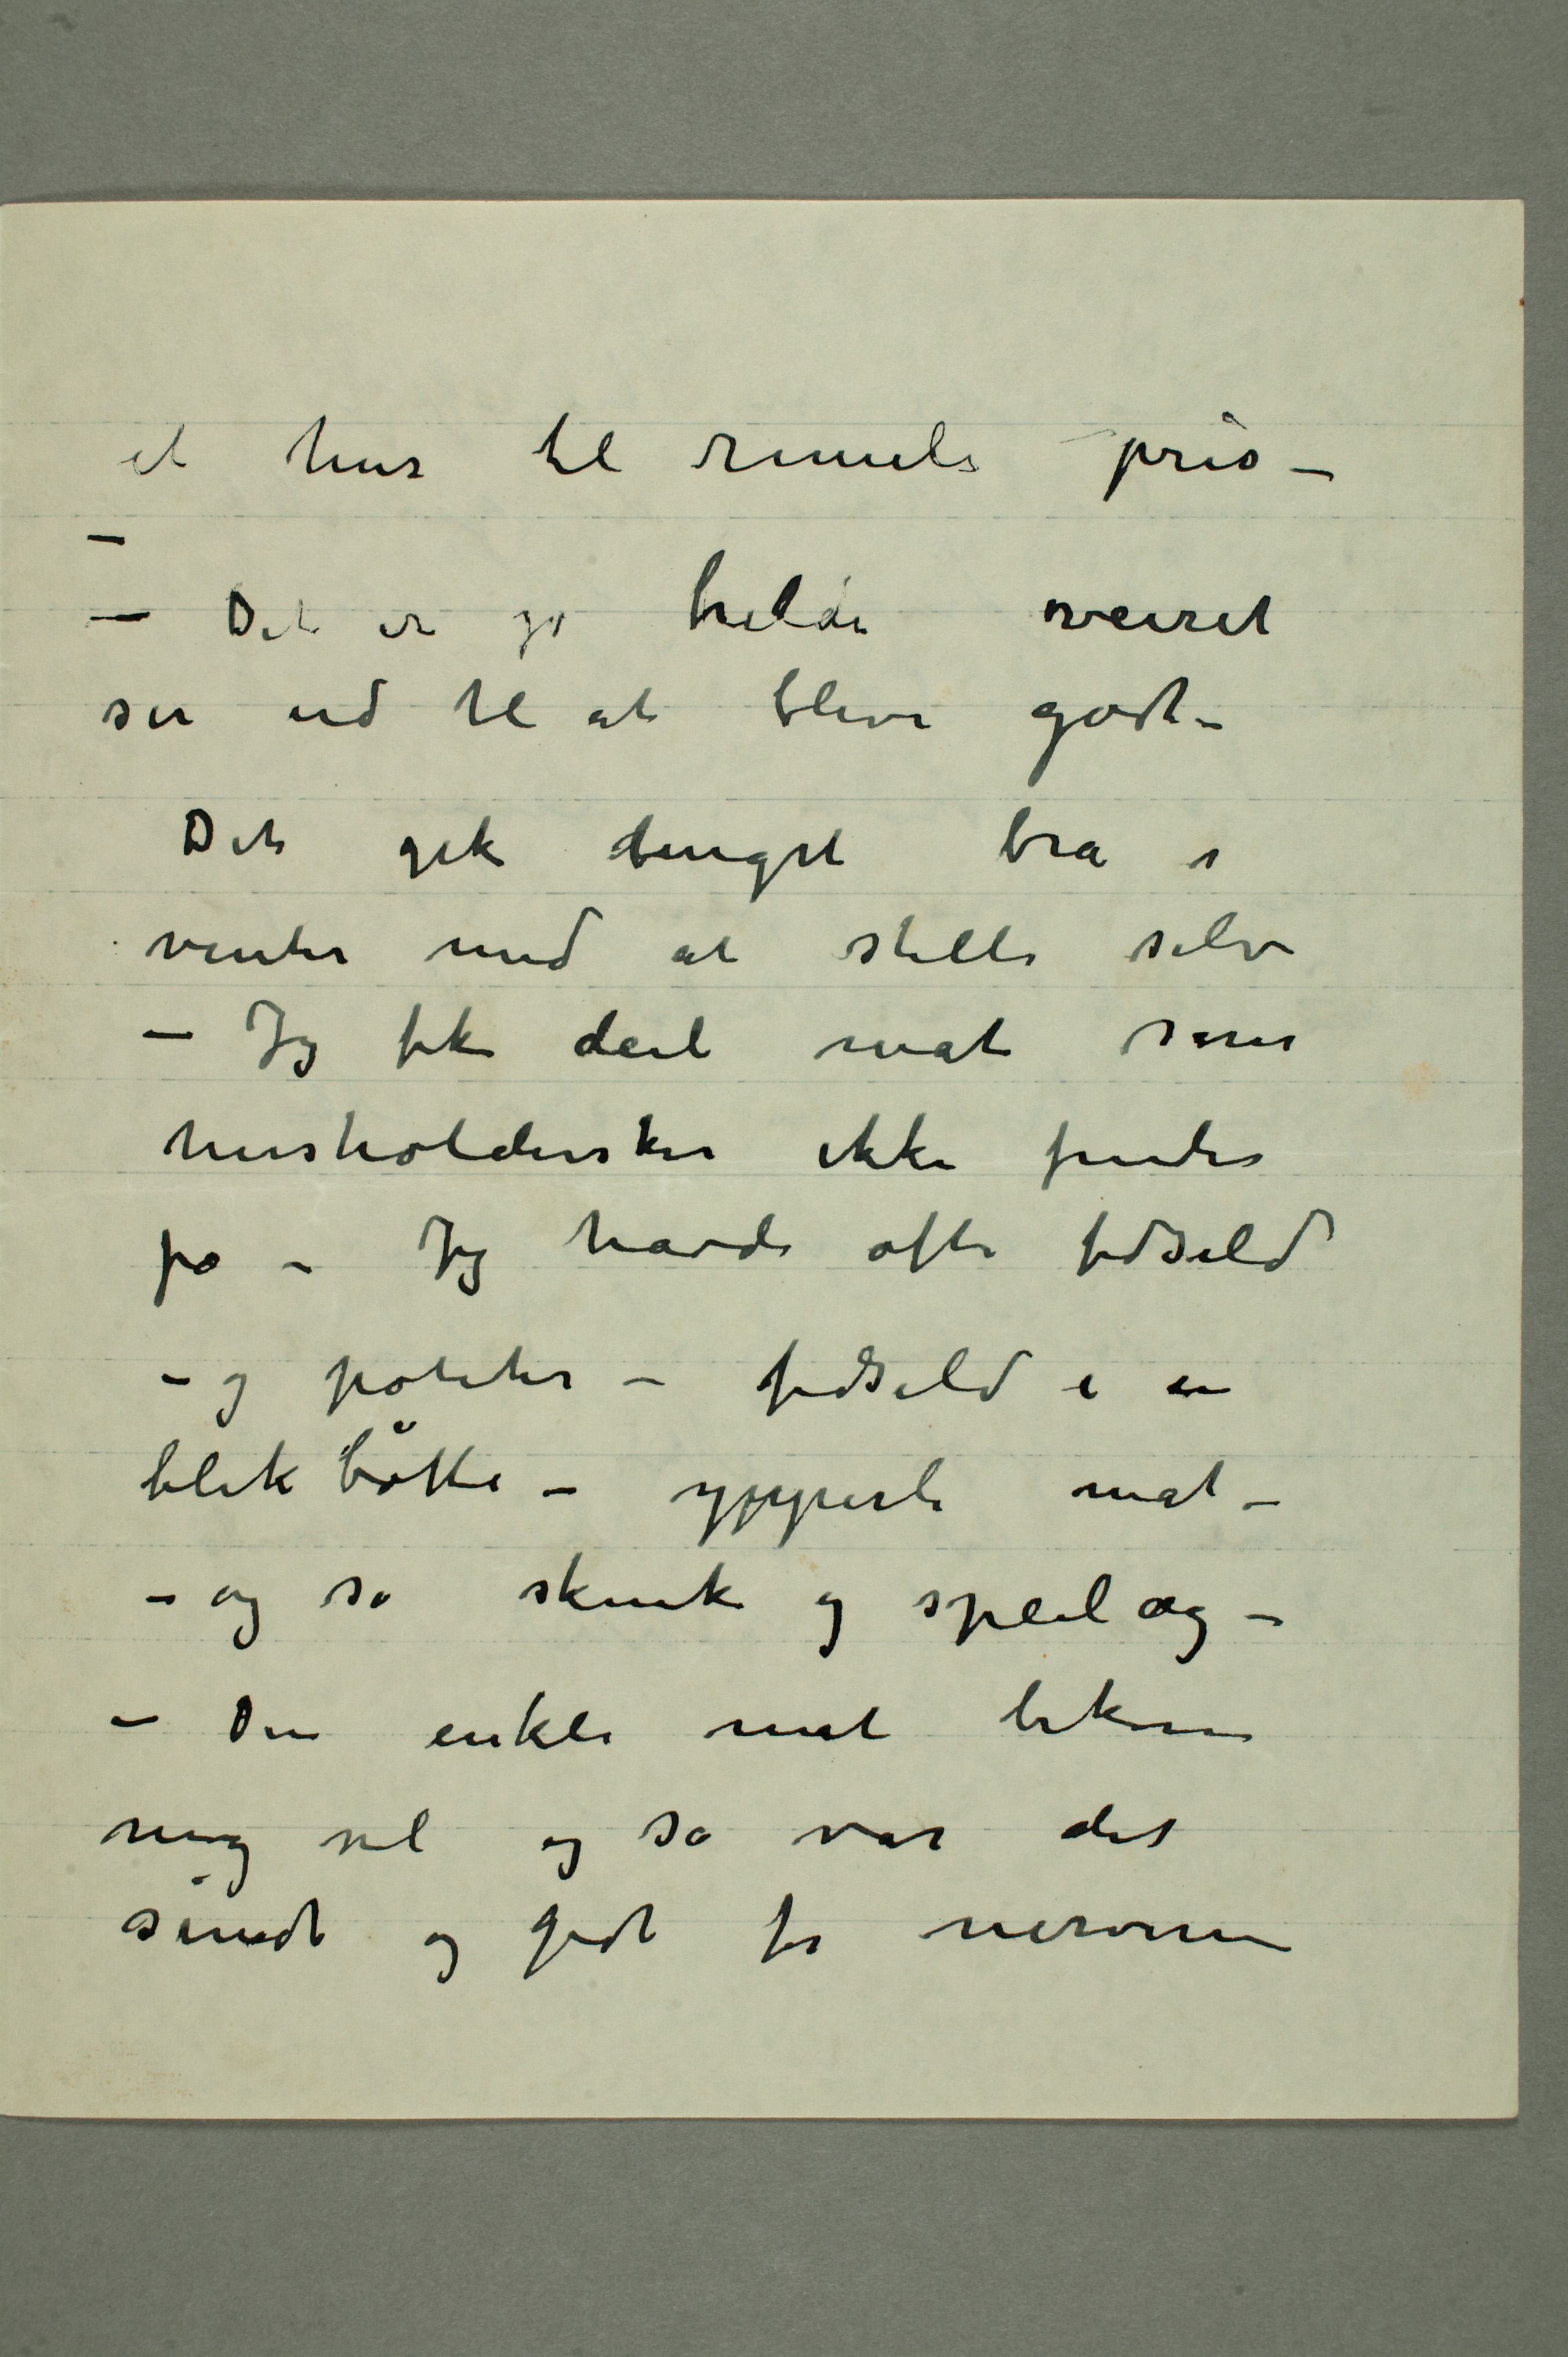 et hus til rimeli pris –
–
– Det er jo heldi veiret
ser ud til at blive godt –
Det gik bra i
vinter med at stelle selv
– Jeg fik deili mat som
husholdersker ikke finder
på – Jeg havde ofte fedsild
– og poteter – fedsild i en
blikbøtte – ypperli mat –
– og så skinke og speilæg –
– Den enkle mat bekom
mig vel og så var det
sundt og godt for nerverne